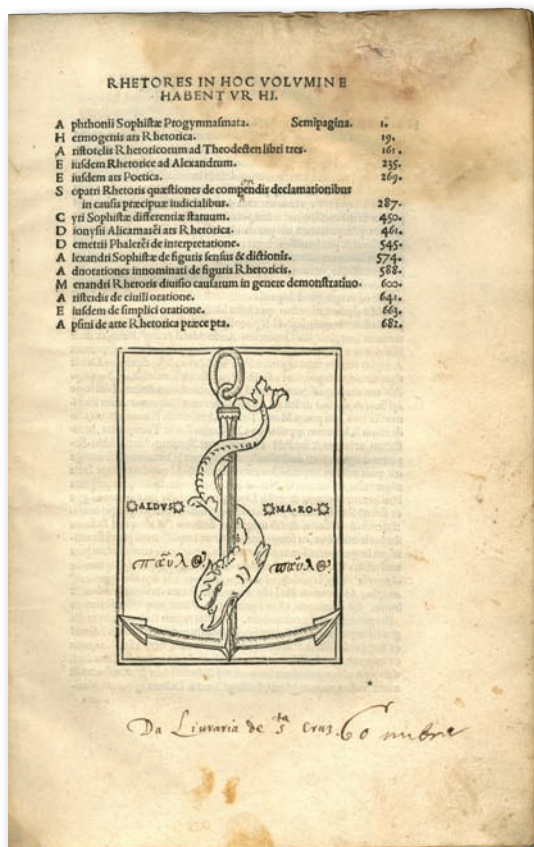 RHETORES IN HOC VOLVMINE
HABENTVR HI.
A phthonii Sophistæ Progymnasmata. Semipagina. 1.
H ermogenis ars Rhetorica. 19.
A ristotelis Rhetoricorum ad Theodecten libri tres. 161.
E iusdem Rhetorice ad Alexandrum. 235.
E iusdem ars Poetica. 269.
S opatri Rhetoris quæstiones de compendis declamationibus
in causis præcipuæ iudicialibus. 287.
C yri Sophistæ differentiæ statuum. 450.
D ionysii Alicarnasēi ars Rhetorica. 461.
D emetrii Phalerēi de interpretatione. 545.
A lexandri Sophistæ de figuris sensus & dictionis. 574.
A dnotationes innominati de figuris Rhetoricis. 588.
M enandri Rhetoris diuisio causarum in genere demonstratiuo. 600.
A risteidis de ciuili oratione. 641.
E iusdem de simplici oratione. 663.
A psini de arte Rhetorica præcepta. 682.
ALDVS MA·RO·
Da Liuraria de S ta Cruz.